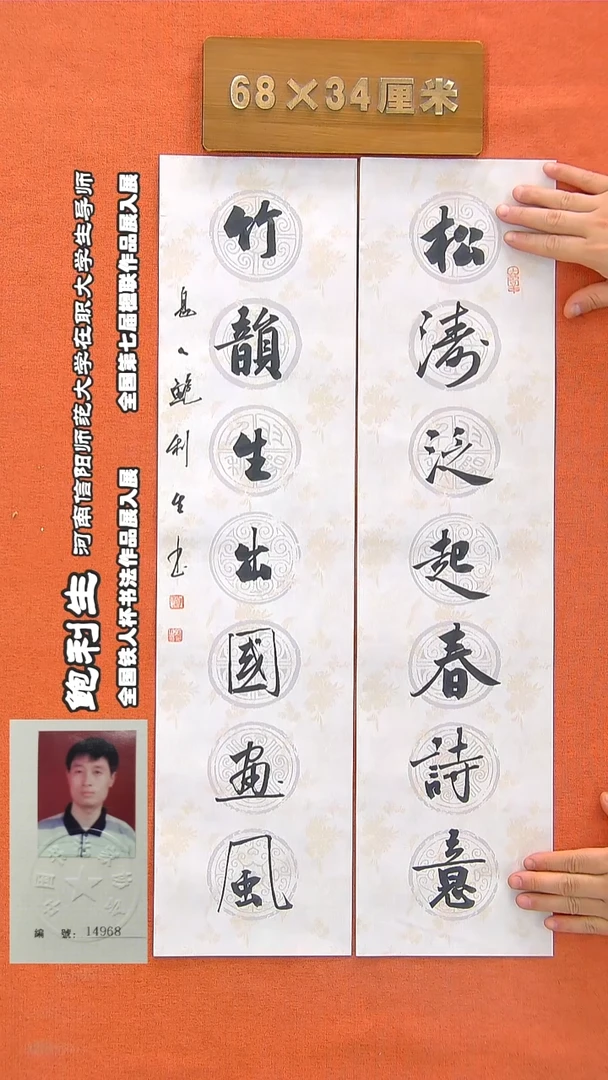 68×34厘米
松濤泛起春詩意
竹韻生出國畫風
鮑利生書
鲍利生 河南信阳师范大学在职大学生导师
全国铁人杯书法作品展入展 全国第七届楹联作品展入展
編 號：14968